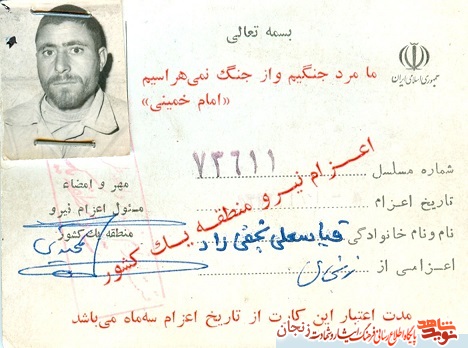 بسمه تعالی
جمهوری اسلامی ایران
ما مرد جنگیم و از جنگ نمی‌هراسیم
«امام خمینی»
شماره مسلسل ۷۳۶۱۱
تاریخ اعزام
نام و نام خانوادگی قیاسعلی نجفی راد
اعزامی از زنجان
مهر و امضاء
مسئول اعزام نیرو
منطقه یک کشور
اعزام نیرو منطقه یک کشور
مدت اعتبار این کارت از تاریخ اعزام سه‌ماه می‌باشد
نوید شاهد
پایگاه اطلاع رسانی فرهنگ ایثار و شهادت زنجان